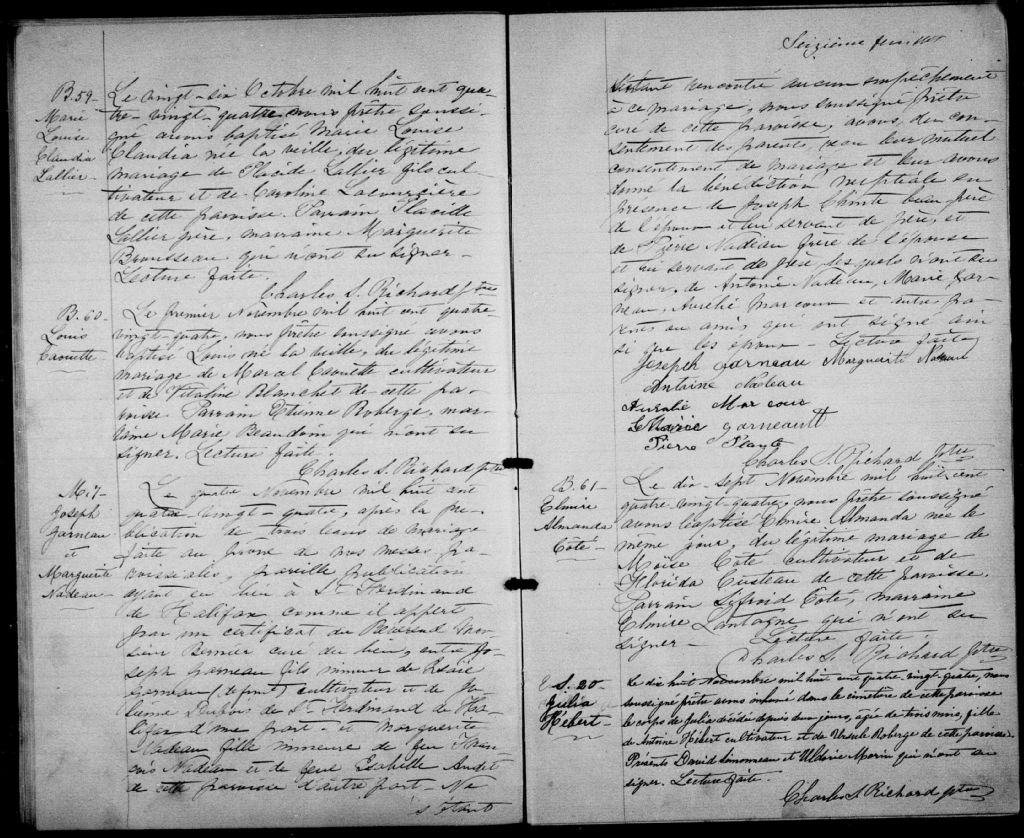 B. 59-
Marie
Louise
Claudia
Lallier-
Le vingt-six Octobre mil huit cent qua-
tre-vingt-quatre nous prêtre soussi-
gné avons baptisé Marie Louise
Claudia née la veille, du légitime
mariage de Placide Lallier fils cul-
tivateur et de Caroline Lacourcière
de cette paroisse. Parrain Placide
Lallier père, marraine Marguerite
Brousseau qui n'ont su signer-
Lecture faite.
Charles S. Richard ptre
B. 60-
Louis
Caouette-
Le premier Novembre mil huit cent quatre-
vingt-quatre, nous prêtre soussigné avons
baptisé Louis né la veille, du légitime
mariage de Marcel Caouette cultivateur
et de Vitaline Blanchet de cette pa-
roisse. Parrain Etienne Roberge, mar-
raine Marie Beaudoin qui n'ont su
signer. Lecture faite.
Charles S. Richard ptre
M. 7
Joseph
Garneau
et
Marguerite
Nadeau-
Le quatre Novembre mil huit cent
quatre-vingt-quatre, après la pu-
blication de trois bans de mariage
faite au prône de nos messes pa-
roissiales, pareille publication
ayant eu lieu à St Ferdinand
de Halifax comme il appert
par un certificat du Révérend Mon-
sieur Bernier curé du lieu, entre Jo-
seph Garneau fils mineur de
Garneau (défunt) cultivateur et de
Dubois de St Ferdinand de Ha-
lifax d'une part- et Marguerite
Nadeau fille mineure de feu Fran-
çois Nadeau et de feue Isabelle Audet
de cette paroisse d'autre part- Ne
s'étant
Seizième feuillet
s'étant rencontré aucun empêchement
à ce mariage, nous soussigné prêtre
curé de cette paroisse, avons, du con-
sentement des parents, reçu leur mutuel
consentement de mariage et leur avons
donné la bénédiction nuptiale en
présence de Joseph beau père
de l'époux et lui servant de père, et
de Pierre Nadeau frère de l'épouse
et lui servant de père lesquels n'ont su
signer, de Antoine Nadeau, Marie Gar-
neau, Aurélie Marcoux et autre pa-
rents ou amis qui ont signé ain
si que les époux- Lecture faite
Joseph Garneau Marguerite Nadeau
Antoine Nadeau
Aurelie Marcoux
Marie Garneault
Pierre
Charles S. Richard ptre
B. 61-
Elmire
Almanda
Coté-
Le dix-sept Novembre mil huit cent
quatre-vingt-quatre, nous prêtre soussigné
avons baptisé Elmire Almanda née le
même jour, du légitime mariage de
Moïse Coté cultivateur et de
Florida Custeau de cette paroisse.
Parrain Sifroid Coté, marraine
Elmire Lantagne qui n'ont su
signer- Lecture faite.
Charles S. Richard ptre
S. 20-
Julia
Hébert-
Le dix huit Novembre mil huit cent quatre-vingt-quatre, nous
soussigné prêtre avons inhumé dans le cimetière de cette paroisse
le corps de Julia décédée depuis deux jours, agée de trois mois, fille
de Antoine Hébert cultivateur et de Ursule Roberge de cette paroisse-
Présents David Simoneau et Uldéric Morin qui n'ont su
signer. Lecture faite.
Charles S. Richard ptre